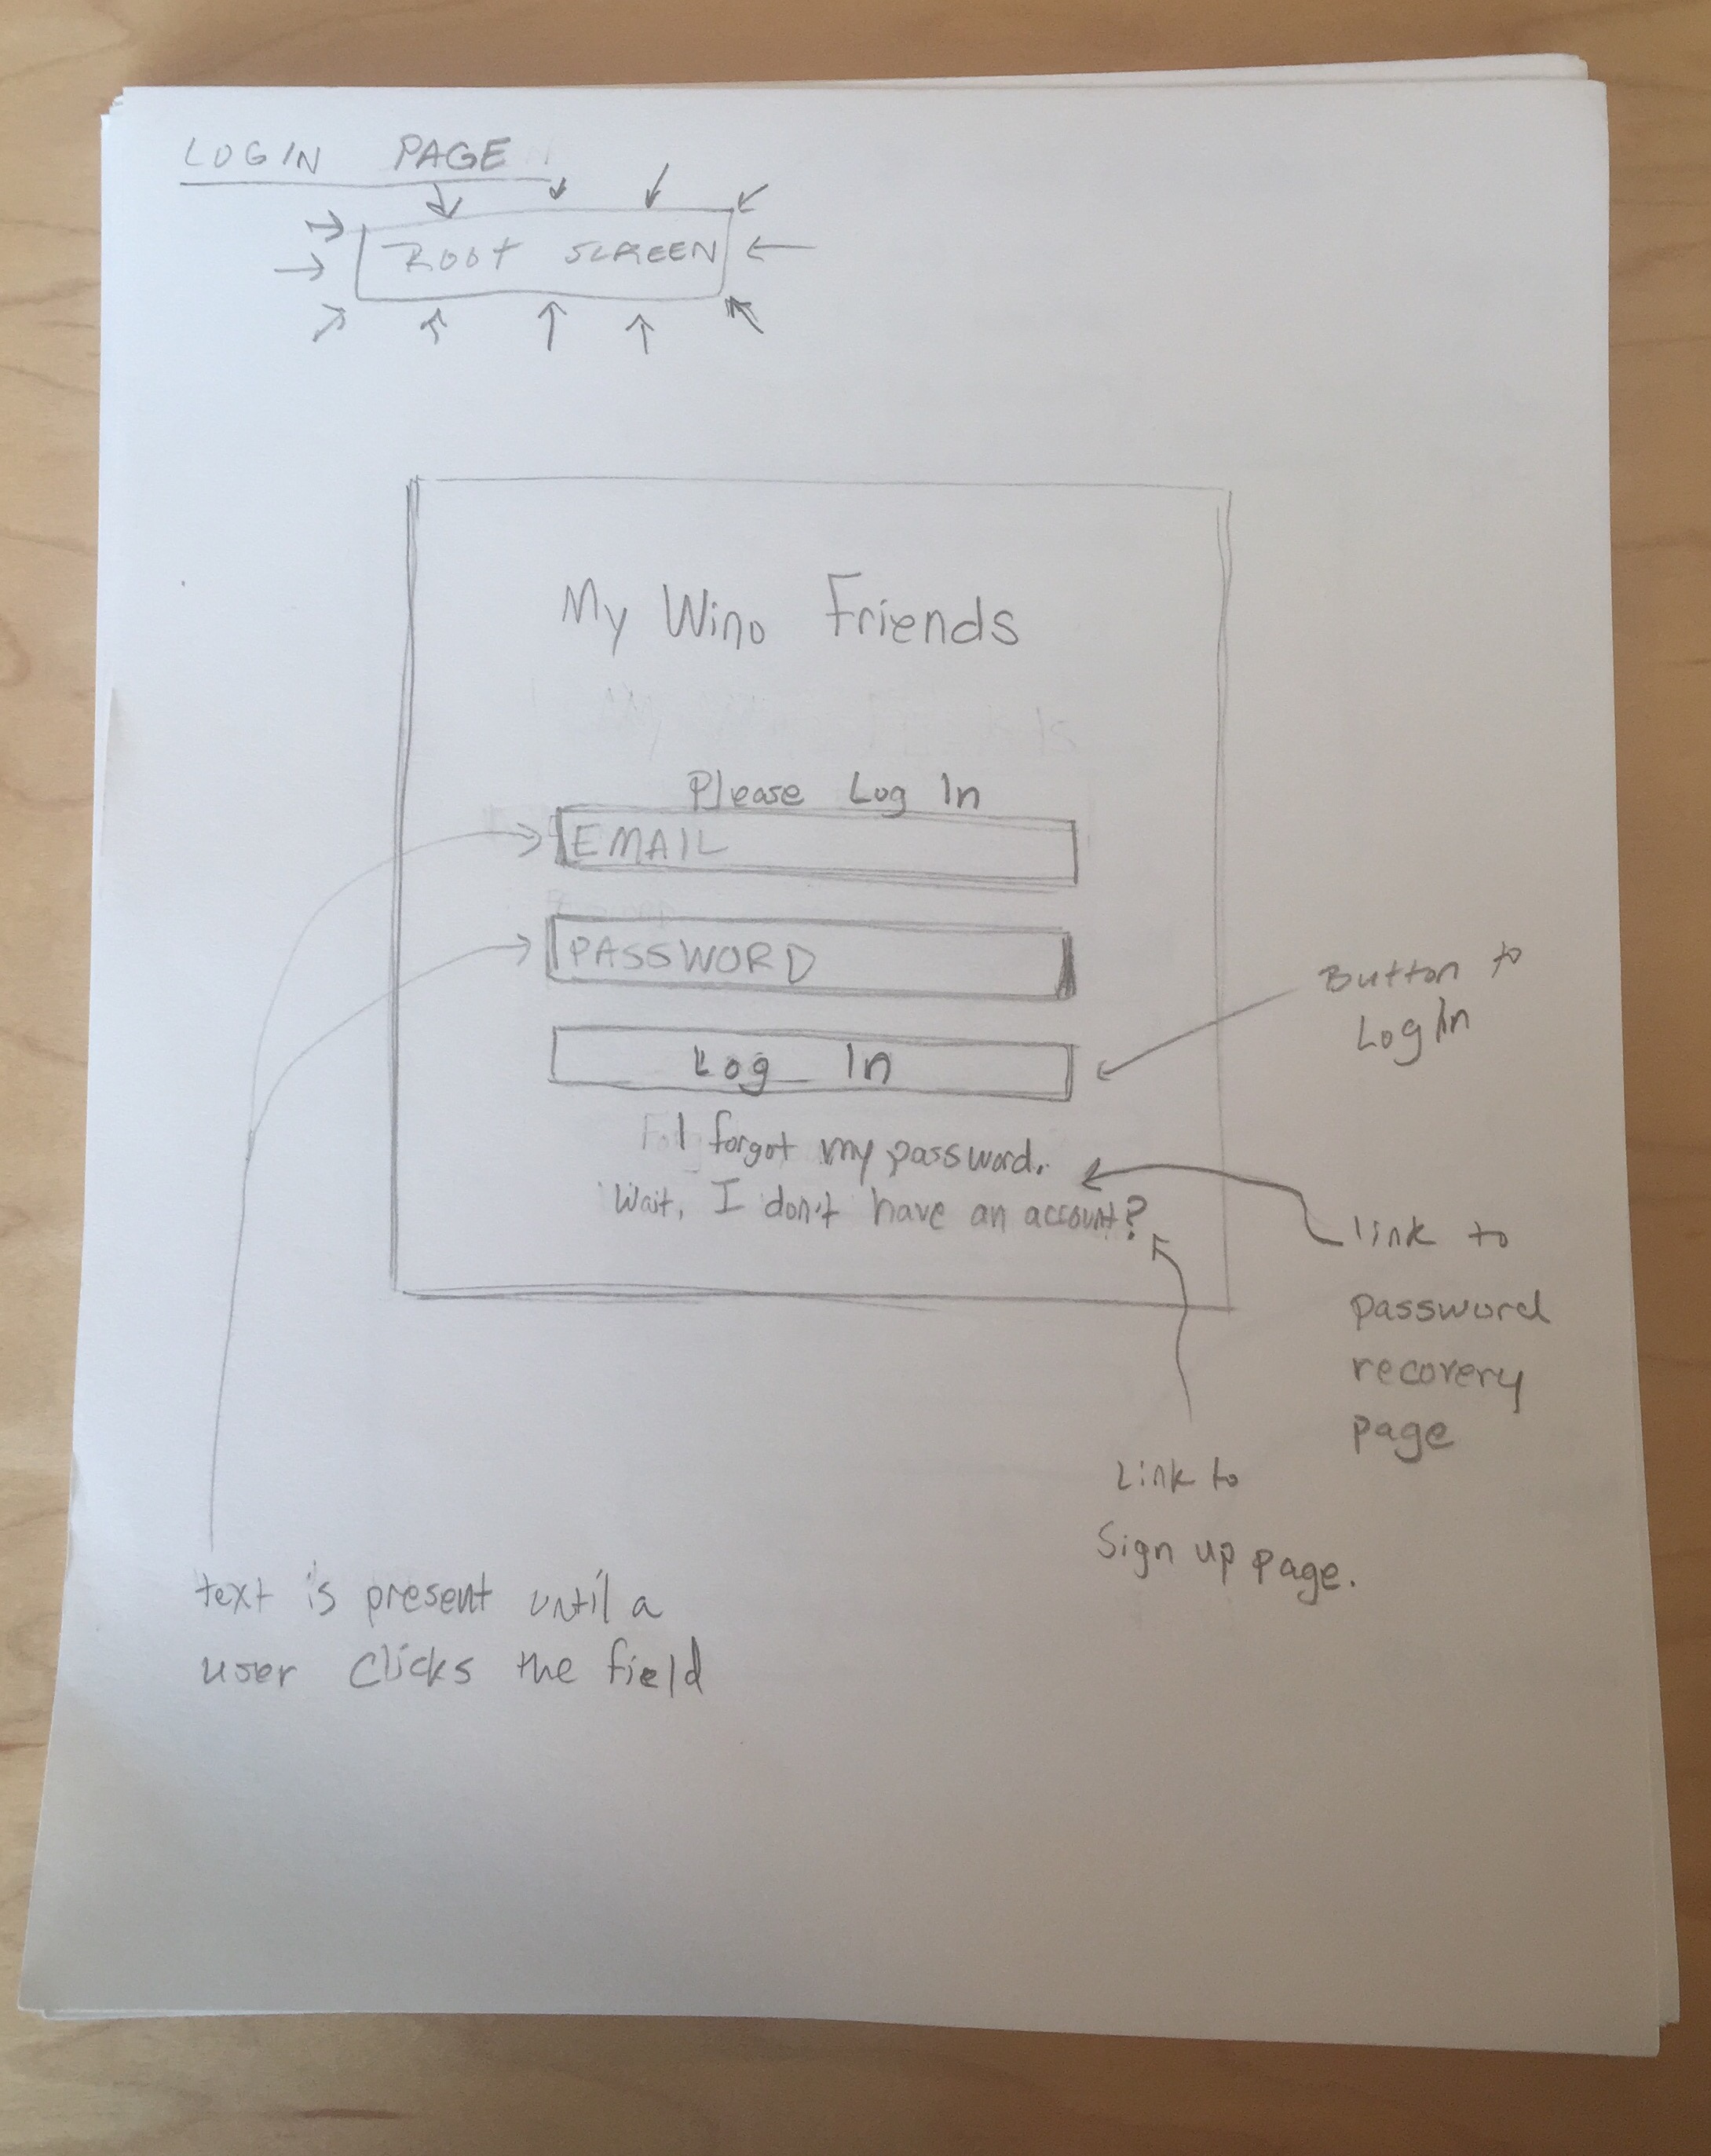 LOGIN PAGE
ROOT SCREEN
My Wino Friends
Please Log In
EMAIL
PASSWORD
Log In
I forgot my password.
Wait, I don't have an account?
Button to
Log In
link to
password
recovery
page
Link to
Sign up page.
text is present until a
user clicks the field